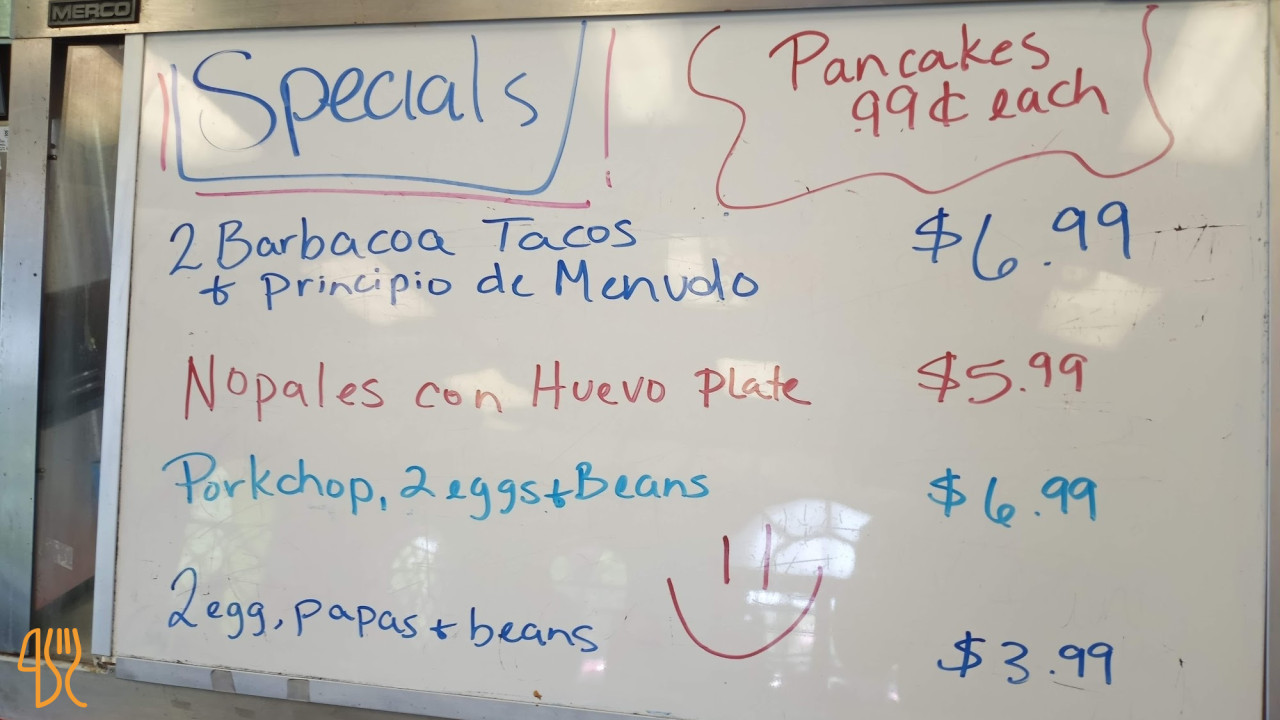 MERCO
Specials !
Pancakes
99¢ each
2 Barbacoa Tacos $6.99
+ Principio de Menudo
Nopales con Huevo Plate $5.99
Porkchop, 2 eggs + Beans $6.99
2 egg, papas + beans $3.99